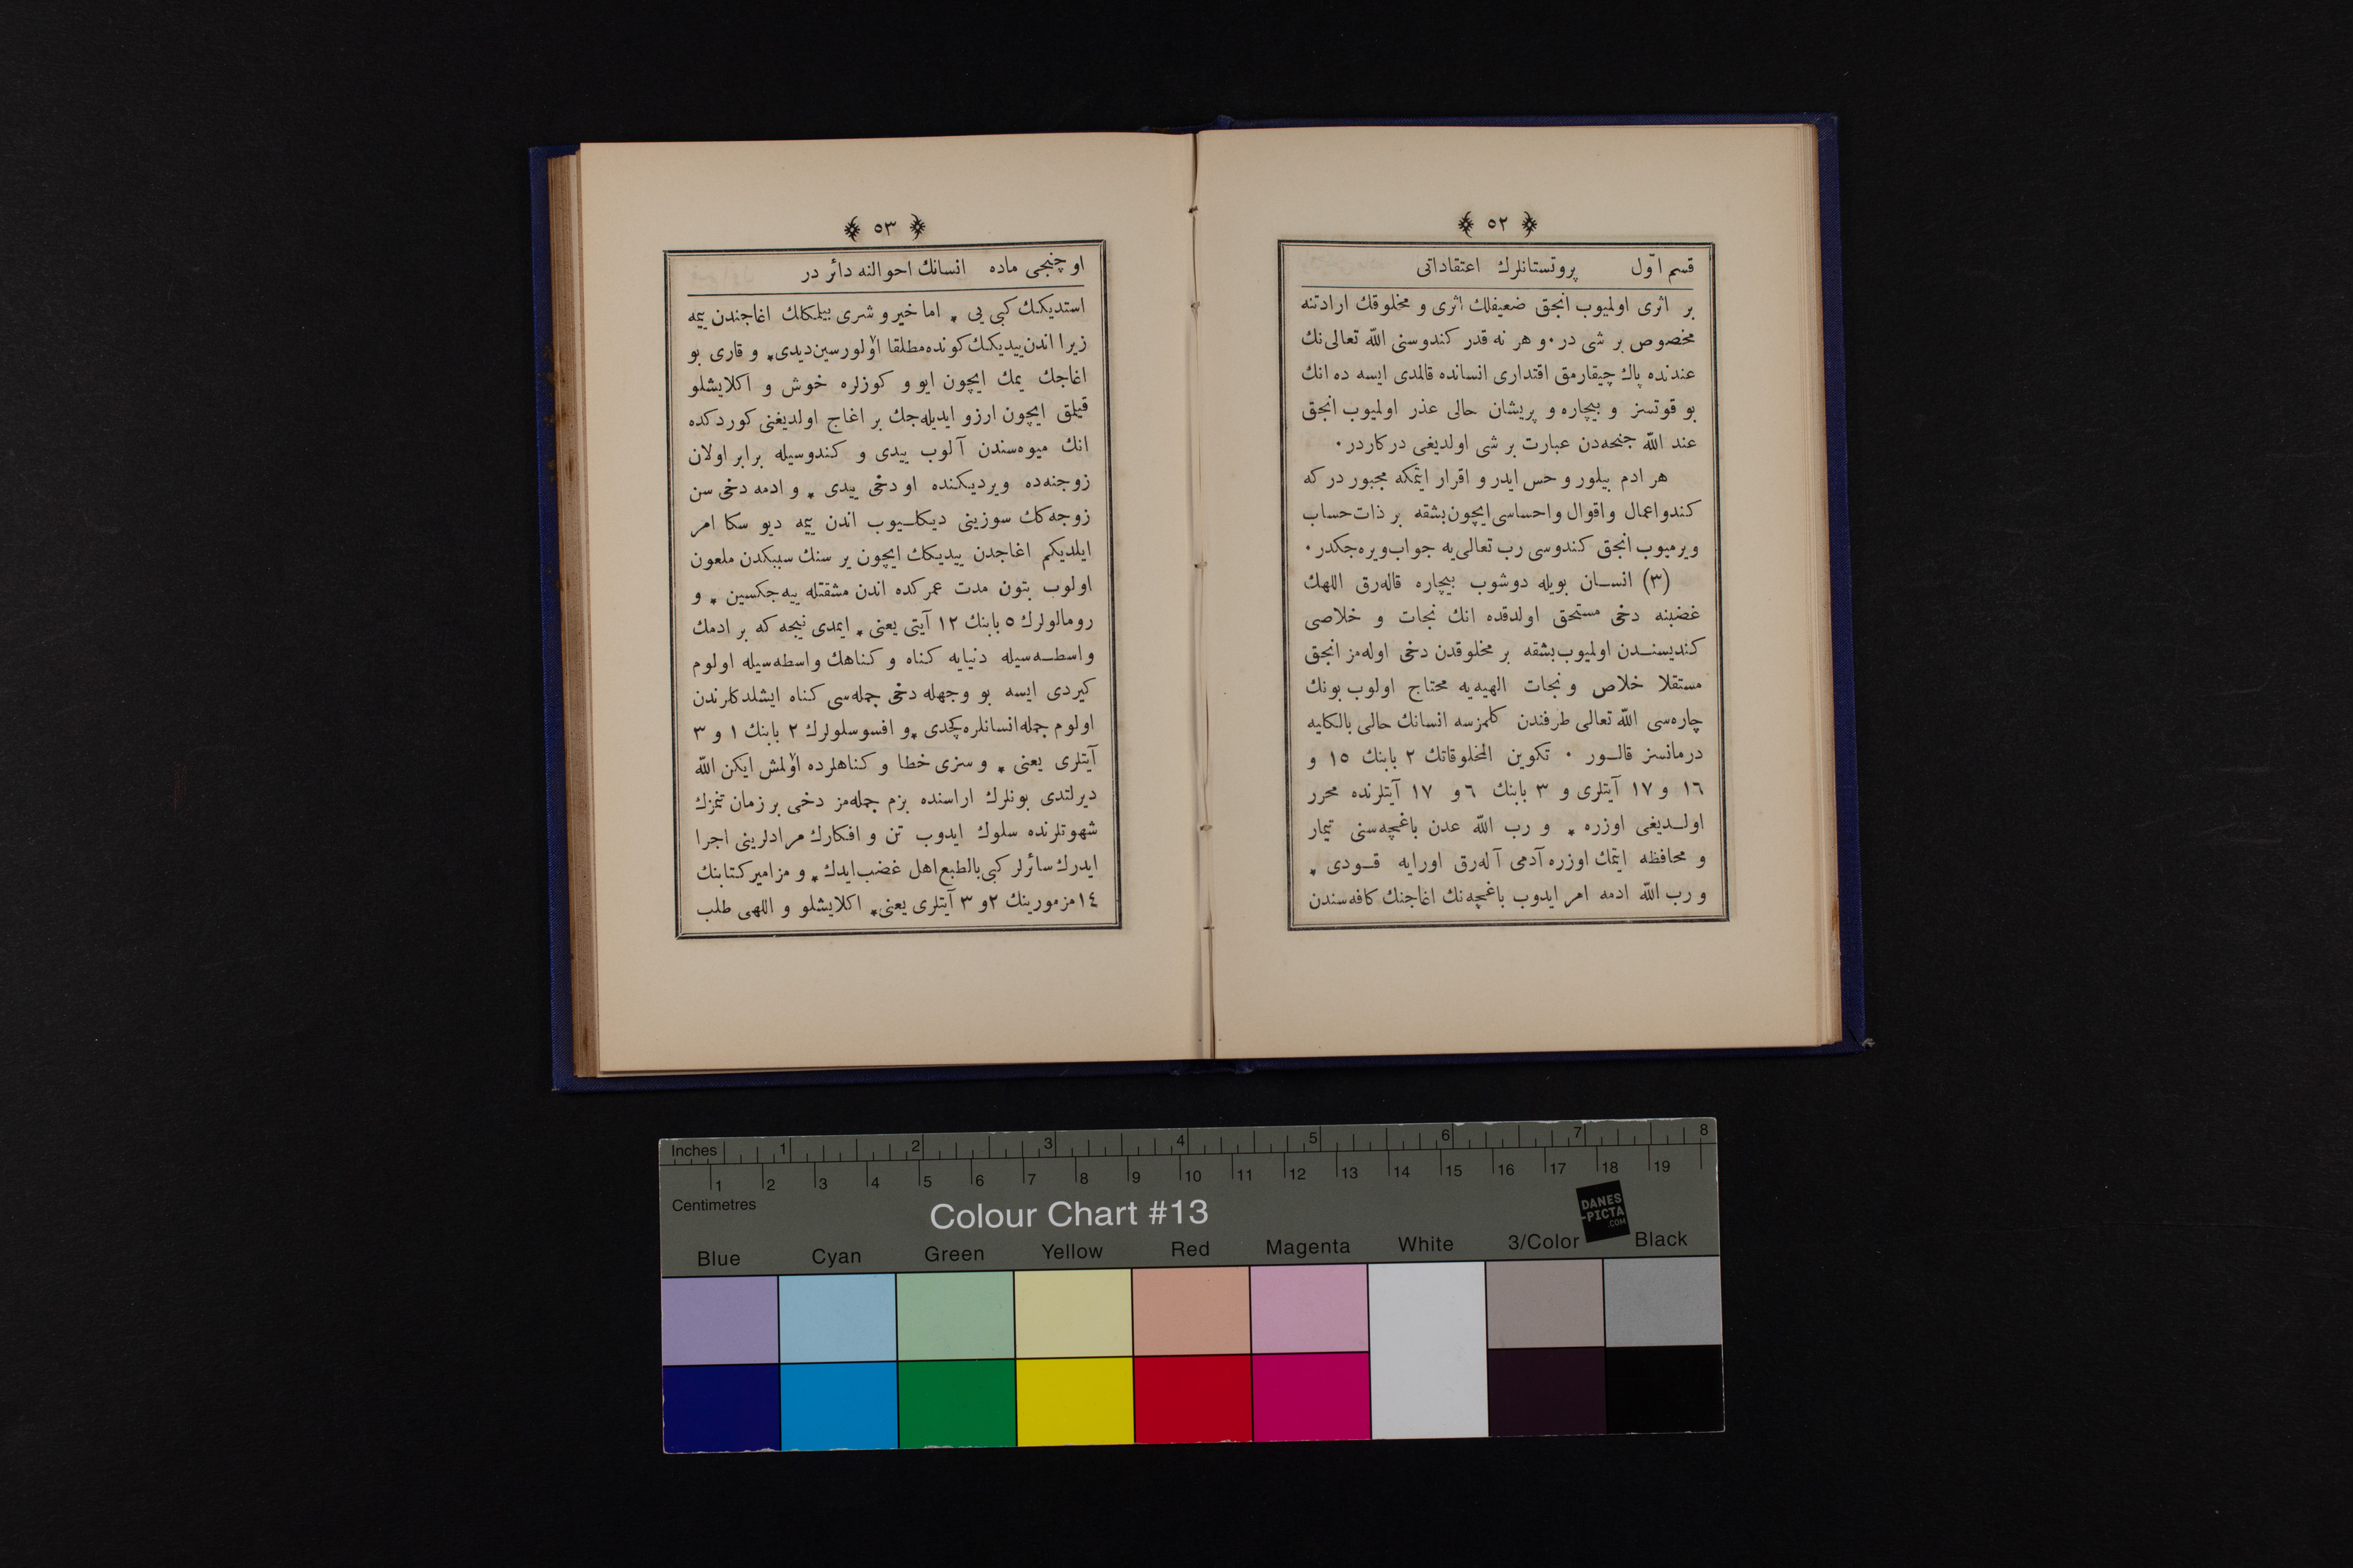 ﴿ ٥٢ ﴾
قسم اوّل پروتستانلرك اعتقاداتی
بر اثری اولمیوب انجق ضعیفلك اثری و مخلوقك ارادتنه
مخصوص بر شی در۰ و هر نه قدر كندوسنی اللّٰه تعالی‌نك
عندنده پاك چیقارمق اقتداری انسانده قالمدی ایسه ده انك
بو قوتسز و بیچاره و پریشان حالی عذر اولمیوب انجق
عند اللّٰه جنحه‌دن عبارت بر شی اولدیغی دركاردر۰
هر ادم بیلور و حس ایدر و اقرار ایتمكه مجبور در كه
كندو اعمال و اقوال و احساسی ایچون بشقه بر ذات حساب
ویرمیوب انجق كندوسی رب تعالی‌یه جواب ویره‌جكدر۰
(٣) انسـان بویله دوشوب بیچاره قاله‌رق اللهك
غضبنه دخی مستحق اولدقده انك نجات و خلاصی
كندیسنـدن اولمیوب بشقه بر مخلوقدن دخی اوله‌مز انجق
مستقلا خلاص و نجات الهیه‌یه محتاج اولوب بونك
چاره‌سی اللّٰه تعالی طرفندن كلمزسه انسانك حالی بالكلیه
درمانسز قالـور ۰ تكوین المخلوقاتك ٢ بابنك ١٥ و
١٦ و ١٧ آیتلری و ٣ بابنك ٦ و ١٧ آیتلرنده محرر
اولـدیغی اوزره ٭ و رب اللّٰه عدن باغچه‌سنی تیمار
و محافظه ایتمك اوزره آدمی آله‌رق اورایه قـودی ٭
و رب اللّٰه ادمه امر ایدوب باغچه‌نك اغاجنك كافه‌سندن
﴿ ٥٣ ﴾
اوچنجی ماده انسانك احوالنه دائر در
استدیكك كبی یی ٭ اما خیر و شری بیلمكلك اغاجندن ییمه
زیرا اندن ییدیكك كونده مطلقا اولورسین دیدی٭ و قاری بو
اغاجك یمك ایچون ایو و كوزلره خوش و اكلایشلو
قیلمق ایچون ارزو ایدیله‌جك بر اغاج اولدیغنی كوردكده
انك میوه‌سندن آلوب ییدی و كندوسیله برابر اولان
زوجنه‌ده ویردیكنده او دخی ییدی ٭ و ادمه دخی سن
زوجه‌كك سوزینی دیكلـیوب اندن ییمه دیو سكا امر
ایلدیكم اغاجدن ییدیكك ایچون یر سنك سببكدن ملعون
اولوب بتون مدت عمركده اندن مشقتله ییه‌جكسین ٭ و
رومالولرك ٥ بابنك ١٢ آیتی یعنی ٭ ایمدی نیجه كه بر ادمك
واسطـه‌سیله دنیایه كناه و كناهك واسطه‌سیله اولوم
كیردی ایسه بو وجهله دخی جمله‌سی كناه ایشلدكلرندن
اولوم جمله انسانلره كچدی ٭ و افسوسلولرك ٢ بابنك ١ و ٣
آیتلری یعنی ٭ و سزی خطا و كناهلرده اولمش ایكن اللّٰه
دیرلتدی بونلرك اراسنده بزم جمله‌مز دخی بر زمان تنمزك
شهوتلرنده سلوك ایدوب تن و افكارك مرادلرینی اجرا
ایدرك سائرلر كبی بالطبع اهل غضب ایدك ٭ و مزامیر كتابنك
١٤ مزمورینك ٢ و ٣ آیتلری یعنی٭ اكلایشلو و اللهی طلب
Inches 1 2 3 4 5 6 7 8
1 2 3 4 5 6 7 8 9 10 11 12 13 14 15 16 17 18 19
Centimetres
Colour Chart #13
DANES
-PICTA
.COM
Blue Cyan Green Yellow Red Magenta White 3/Color Black